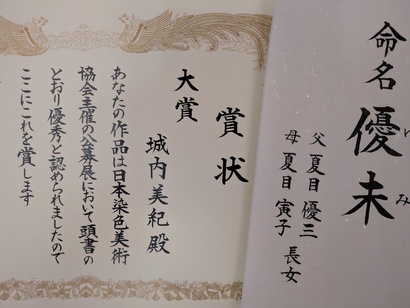 命名
優未
み
父 夏目 優三
母 夏目 寅子 長女
賞状
大賞
城内美紀殿
あなたの作品は日本染色美術
協会主催の公募展において頭書の
とおり優秀と認められましたので
ここにこれを賞します